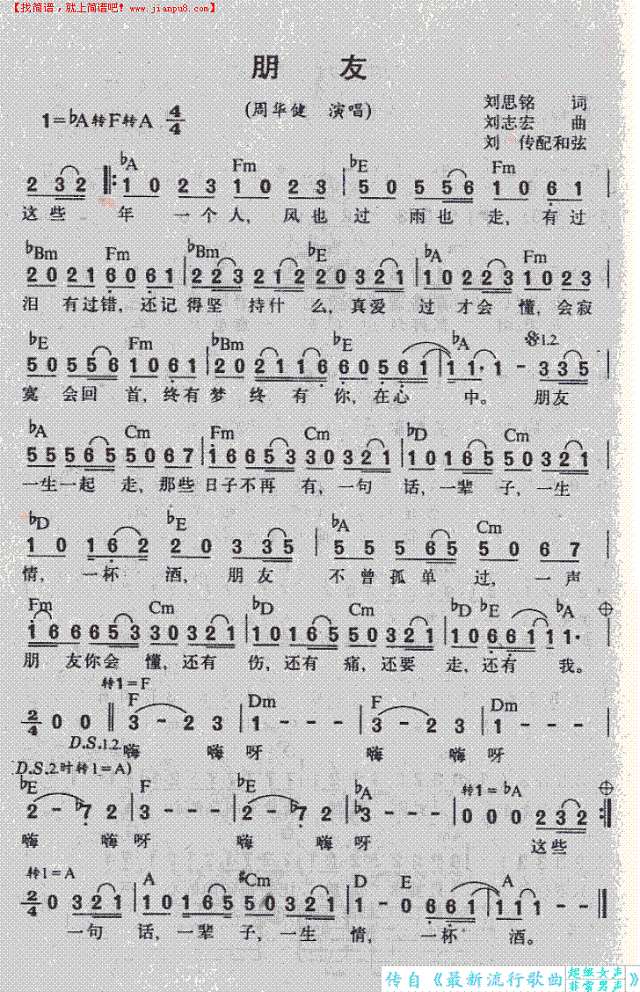 【找简谱，就上简谱吧! www.jianpu8.com】
朋 友
(周华健 演唱)
1=♭A转F转A 4/4
刘思铭 词
刘志宏 曲
刘 传配和弦
♭A Fm ♭E Fm
2 3 2 ‖: 1 0 2 3 1 0 2 3 | 5 0 5 5 5 6 1 0 6 1 |
这些 年 一个人, 风也过 雨也走, 有过
♭Bm Fm ♭Bm ♭E ♭A Fm
2 0 2 1 6 0 6 1 | 2 2 3 2 1 2 2 0 3 2 1 | 1 0 2 2 3 1 0 2 3 |
泪 有过错, 还记得坚持什么, 真爱过才会懂, 会寂
♭E Fm ♭Bm ♭E ♭A 1.2.
5 0 5 5 6 1 0 6 1 | 2 0 2 1 1 6 6 0 5 6 1 | 1 1· 1 - 3 3 5 |
寞会回首, 终有梦终有你, 在心中。 朋友
♭A Cm Fm Cm ♭D Cm
5 5 5 6 5 5 0 6 7 | 1 6 6 5 3 3 0 3 2 1 | 1 0 1 6 5 5 0 3 2 1 |
一生一起走, 那些日子不再有, 一句话, 一辈子, 一生
♭D ♭E ♭A Cm
1 0 1 6 2 2 0 3 3 5 | 5 5 5 6 5 5 0 6 7 |
情, 一杯酒, 朋友不曾孤单过, 一声
Fm Cm ♭D Cm ♭D ♭E ♭A
1 6 6 6 5 3 3 0 3 2 1 | 1 0 1 6 5 5 0 3 2 1 | 1 0 6 6 1 1 1· |
朋友你会懂, 还有伤, 还有痛, 还要走, 还有我。
转1=F
F Dm F Dm
2/4 0 0 ‖ 3 - 2 3 | 1 - - - | 3 - 2 3 | 1 - - - |
D.S.1.2. 嗨 嗨呀 嗨 嗨呀
D.S.2.时转1=A)
♭E F ♭E ♭A 转1=♭A
2 - ♭7 2 | 3 - - - | 2 - ♭7 2 | ♭3 - - - | 0 0 0 2 3 2 :‖
嗨 嗨呀 嗨 嗨呀 这些
转1=A A #Cm D E A
2/4 0 3 2 1 | 1 0 1 6 5 5 0 3 2 1 | 1 - 0 6 6 1 | 1 1 1 - - ‖
一句话, 一辈子, 一生情, 一杯酒。
传自《最新流行歌曲 超级女声 非常男声》